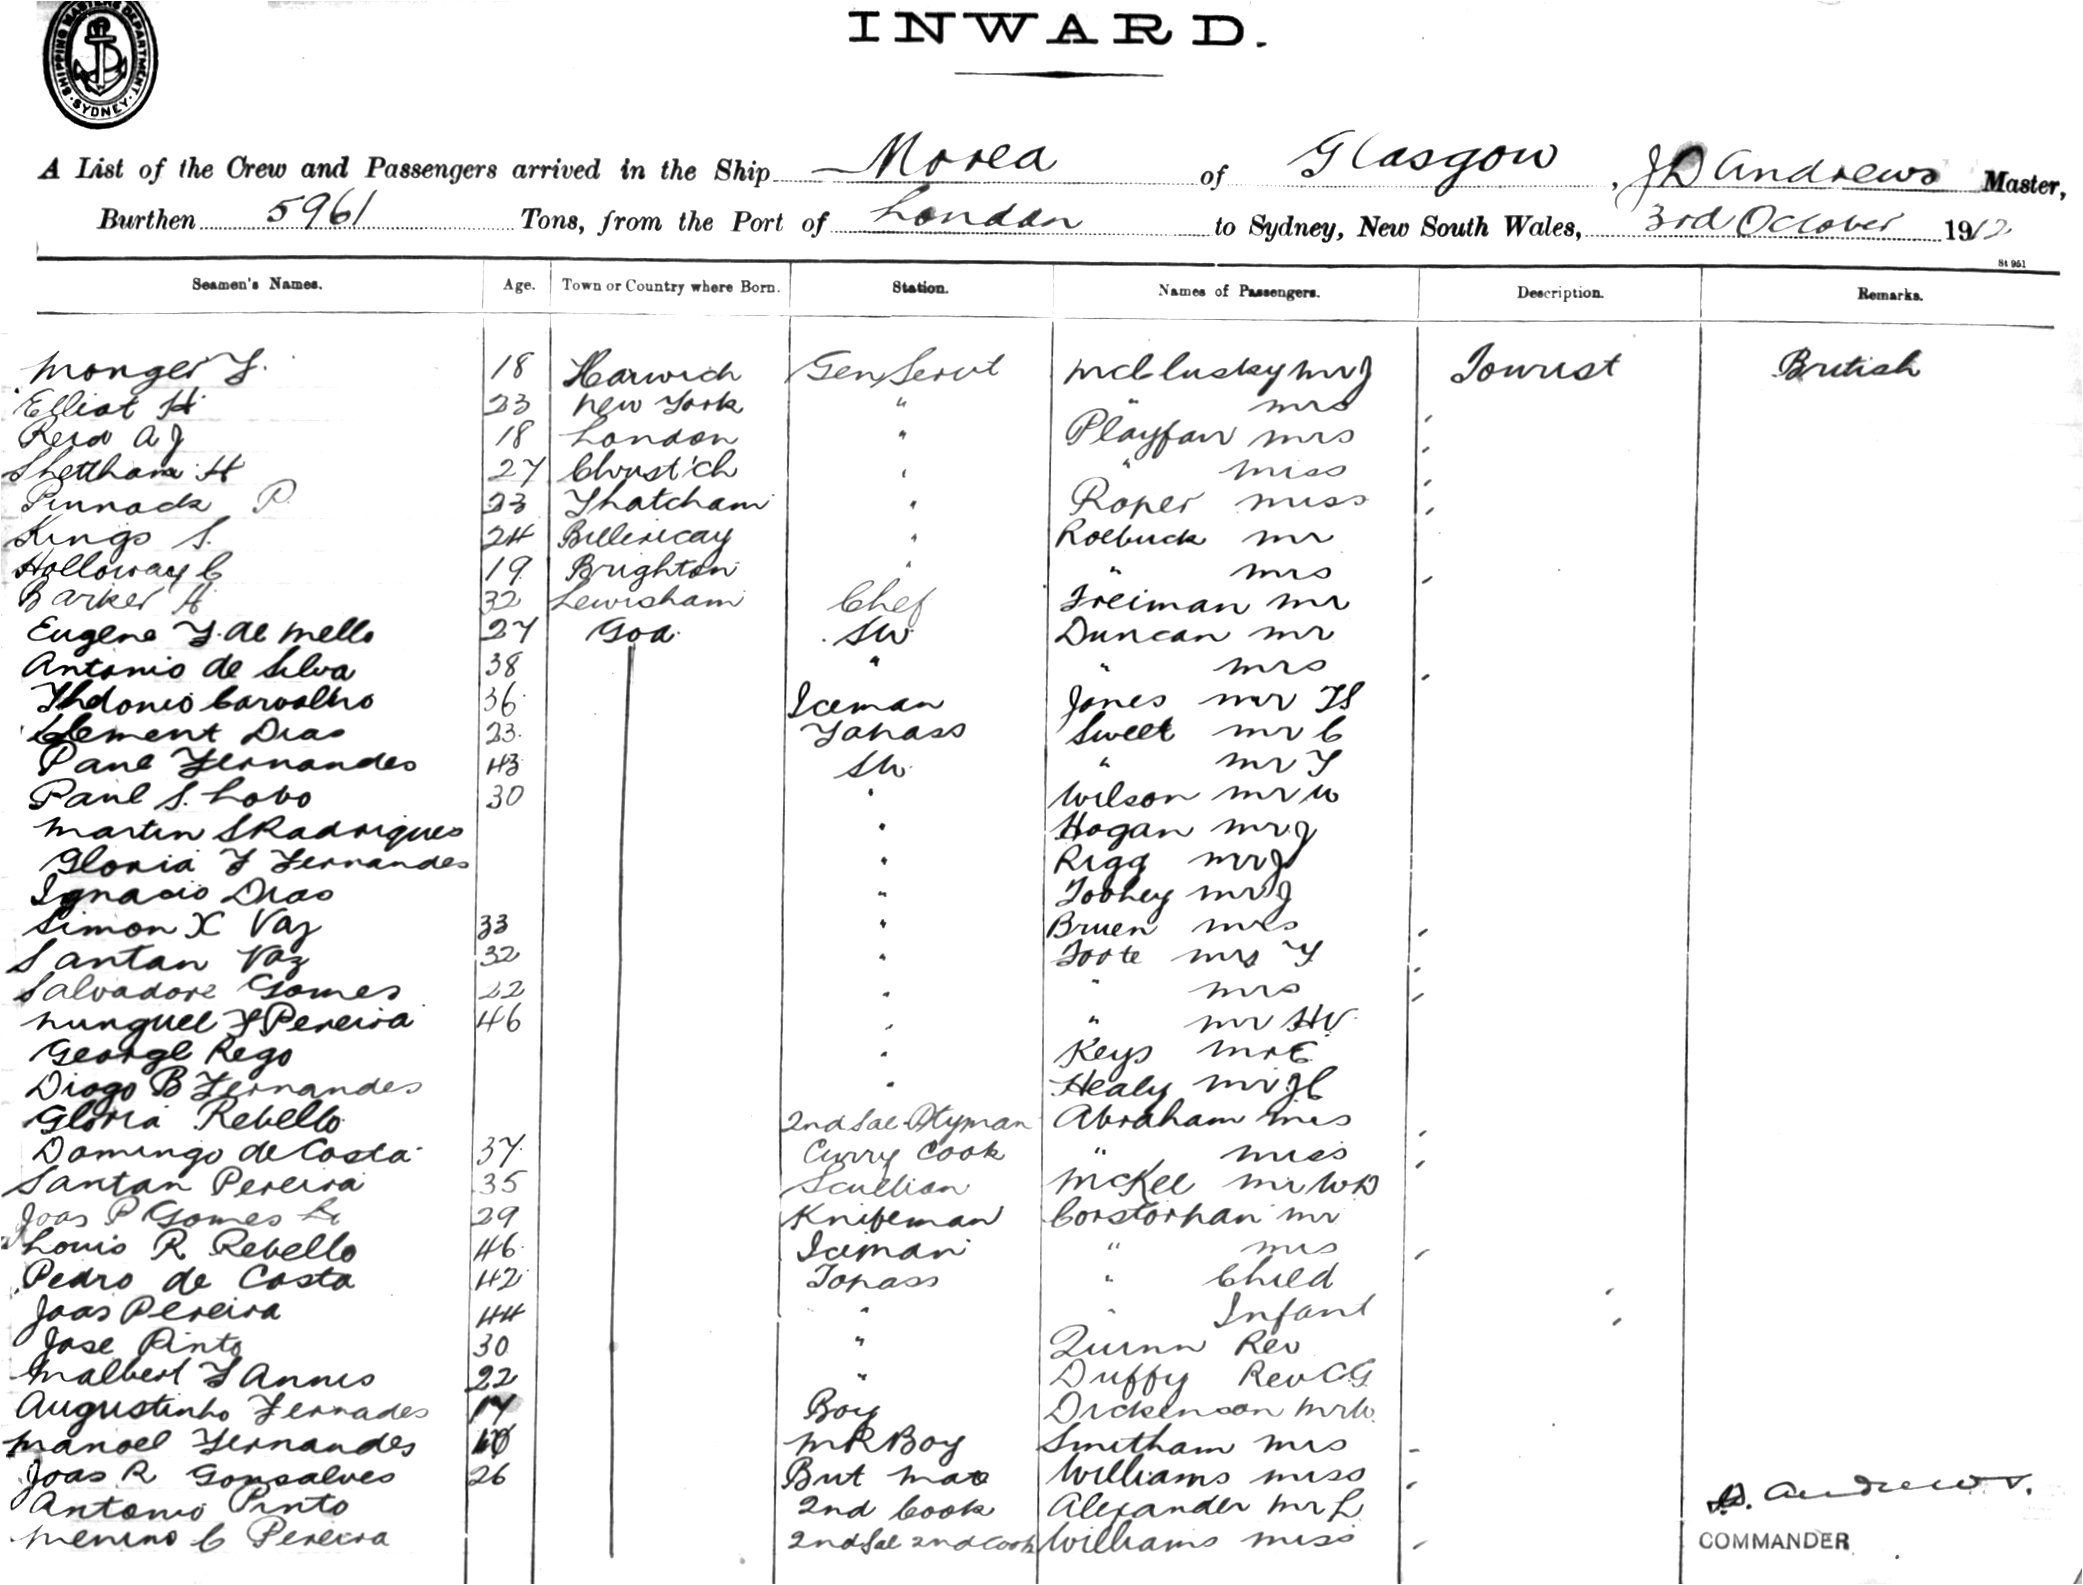 SHIPPING MASTERS DEPARTMENT. SYDNEY.
INWARD.
A List of the Crew and Passengers arrived in the Ship Morea of Glasgow, J D Andrews Master,
Burthen 5961 Tons, from the Port of London to Sydney, New South Wales, 3rd October 1912
St 951
Seamen's Names. Age. Town or Country where Born. Station. Names of Passengers. Description. Remarks.
Monger F. 18 Harwich Gen Servt McClusky Mr J Tourist British
Elliot H 23 New York " " Mrs
Reid A J 18 London " Playfair Mrs
Shettham H 27 Christ'ch " " Miss
Pinnock P 23 Thatcham " Roper Miss
Kings S. 24 Billericay " Roebuck Mr
Holloway C 19 Brighton " " Mrs
Barker A 32 Lewisham Chef Freiman Mr
Eugene F. de Mello 27 Goa. Sw. Duncan Mr
Antonio de Silva 38 " " Mrs
Carvalho 36 Iceman Jones Mr
Clement Dias 23 Topass Sweet Mr C
Fernandes 43 Sw. " Mr F
Paul S. Lobo 30 " Wilson Mr W
Martin S Rodrigues " Hogan Mr J
Gloria F Fernandes " Rigg Mr J
Ignacio Dias " Toohey Mr J
Simon X Vaz 33 " Bruen Mrs
Santan Vaz 32 " Foote Mrs F
Salvadore Gomes 22 " " Mrs
F Pereira 46 " " Mr HV.
George Rego " Keys Mr E
Diogo B Fernandes " Healy Mr J C
Gloria Rebello 2nd Sal Ptyman Abraham Mrs
Domingo de Costa 37 Curry Cook " Miss
Santan Pereira 35 Scullion McKee Mr W D
Joas P Gomes 29 Knifeman Corstorphan Mr
Louis R Rebello 46 Iceman " Mrs
Pedro de Costa 42 Topass " Child
Joas Pereira 44 " " Infant
Jose Pinto 30 " Quinn Rev
F Annis 22 " Duffy Rev C G
Augustinho Fernades 17 Boy Dickenson Mr W.
Manoel Fernandes MR Boy Smitham Mrs
Joas R Gonsalves 26 But Mate Williams Miss
Antonio Pinto 2nd Cook Alexander Mr L
Menino C Pereira 2nd Sal 2nd Cook Williams Miss
J D. Andrews.
COMMANDER